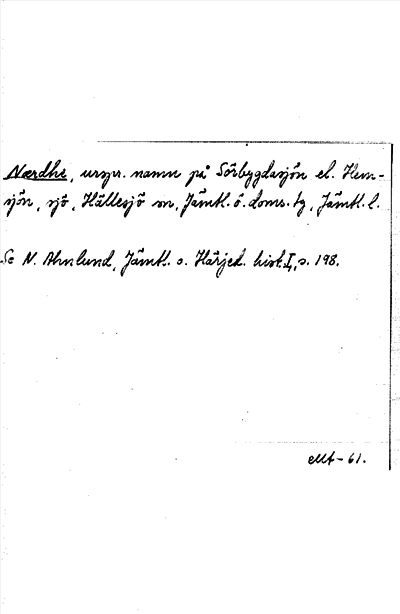 Nærdhe, urspr. namn på Sörbygdasjön el. Hem-
sjön, sjö, Hällesjö sn, Jämtl. ö. doms. tg, Jämtl. l.
Se N. Ahnlund, Jämtl. o. Härjed. hist. I, s. 198.
-61.